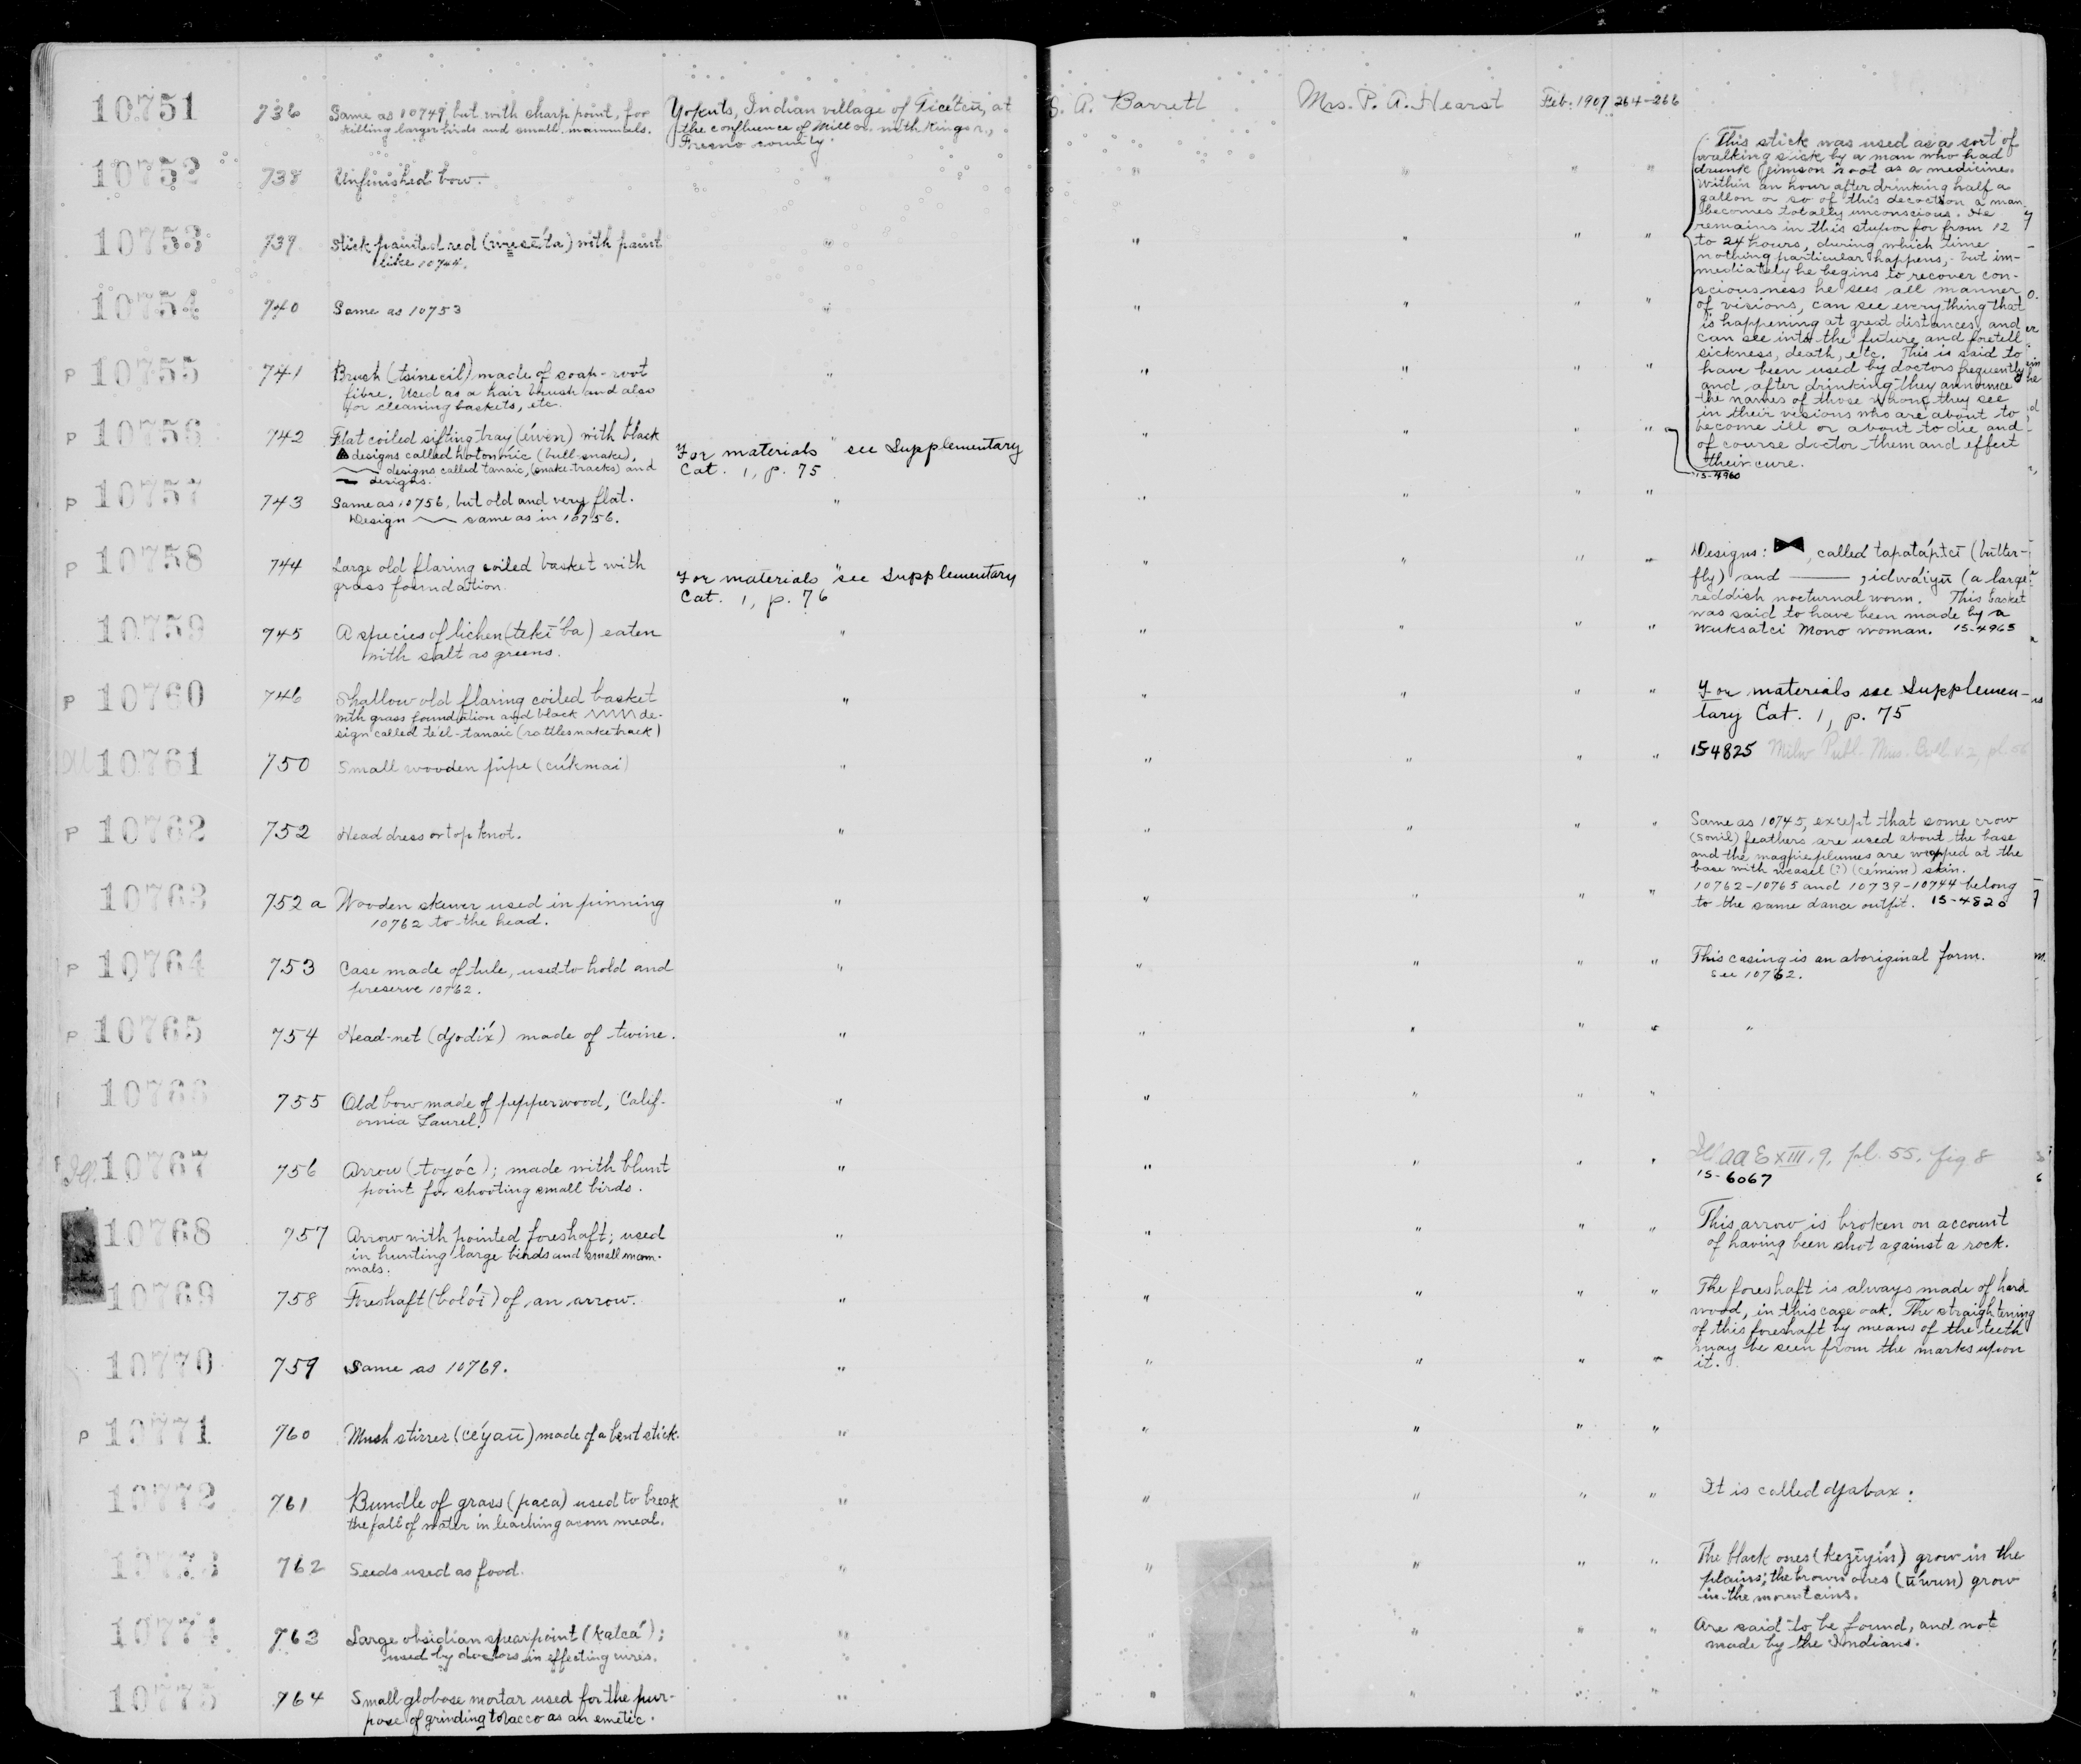 10751 736 Same as 10749, but with sharp point, for Yokuts, Indian village of Ticétcū, at S. A. Barrett Mrs. P. A. Hearst Feb. 1907 264-266
killing larger birds and small mammals. the confluence of Mill cr. with Kings r.,
Fresno county.
10752 738 Unfinished bow. " " " " "
10753 739 Stick painted red with paint " " " " "
like 10744.
This stick was used as a sort of
walking stick by a man who had
drunk jimson root as a medicine.
Within an hour after drinking half a
gallon or so of this decoction a man
becomes totally unconscious. He
remains in this stupor for from 12
to 24 hours, during which time
nothing particular happens, but im-
mediately he begins to recover con-
sciousness he sees all manner
of visions, can see everything that
is happening at great distances, and
can see into the future and foretell
sickness, death, etc. This is said to
have been used by doctors frequently
and after drinking they announce
the names of those whom they see
in their visions who are about to
become ill or about to die and
of course doctor them and effect
their cure.
15-4960
10754 740 Same as 10753 " " " " "
P 10755 741 Brush (tsinecil) made of soap-root " " " " "
fibre. Used as a hair brush and also
for cleaning baskets, etc.
P 10756 742 Flat coiled sifting tray (éwen) with black For materials " see Supplementary " " " "
designs called hotonmic (bull-snake), Cat. 1, p. 75
designs called tanaic, (snake-tracks) and
designs.
P 10757 743 Same as 10756, but old and very flat. " " " " "
Design same as in 10756.
P 10758 744 Large old flaring coiled basket with For materials " see Supplementary " " " " Designs: , called tapatáptcī (butter-
grass foundation. Cat. 1, p. 76 fly) and , idwáiyū (a large
reddish nocturnal worm. This basket
was said to have been made by a
Wuksatci Mono woman. 15-4965
10759 745 A species of lichen (tekī́ba) eaten " " " " "
with salt as greens.
P 10760 746 Shallow old flaring coiled basket " " " " " For materials see Supplemen-
with grass foundation and black de- tary Cat. 1, p. 75
sign called téel-tanaic (rattlesnake track)
Ill 10761 750 Small wooden pipe (cúkmai) " " " " " 15-4825 Milw Publ. Mus. Bull v. 2, pl.
P 10762 752 Head dress or top knot. " " " " " Same as 10745, except that some crow
(sonil) feathers are used about the base
and the magpie plumes are wrapped at the
base with weasel (?) (cémim) skin.
10762-10765 and 10739-10744 belong
to the same dance outfit. 15-4820
10763 752 a Wooden skewer used in pinning " " " " "
10762 to the head.
P 10764 753 Case made of tule, used to hold and " " " " " This casing is an aboriginal form.
preserve 10762. See 10762.
P 10765 754 Head-net (djodíx) made of twine. " " " " " "
10766 755 Old bow made of pepperwood, Calif- " " " " "
ornia Laurel.
Ill. 10767 756 Arrow (toyóc); made with blunt " " " " " Ill. AAE XIII, 9, pl. 55, fig 8
point for shooting small birds. 15-6067
10768 757 Arrow with pointed foreshaft; used " " " " " This arrow is broken on account
in hunting large birds and small mam- of having been shot against a rock.
mals.
10769 758 Foreshaft (bolóī) of an arrow. " " " " " The foreshaft is always made of hard
wood, in this case oak. The straightening
of this foreshaft by means of the teeth
may be seen from the marks upon
it.
10770 759 Same as 10769. " " " " "
P 10771 760 Mush stirrer (céyaū) made of a bent stick. " " " " "
10772 761 Bundle of grass (paca) used to break " " " " " It is called djabax.
the fall of water in leaching acorn meal.
10773 762 Seeds used as food. " " " " " The black ones (kezīyín) grow in the
plains; the brown ones (ū́wun) grow
in the mountains.
10774 763 Large obsidian spearpoint (kalcá); " " " " " Are said to be found, and not
used by doctors in effecting cures. made by the Indians.
10775 764 Small globose mortar used for the pur- " " " " "
pose of grinding tobacco as an emetic.